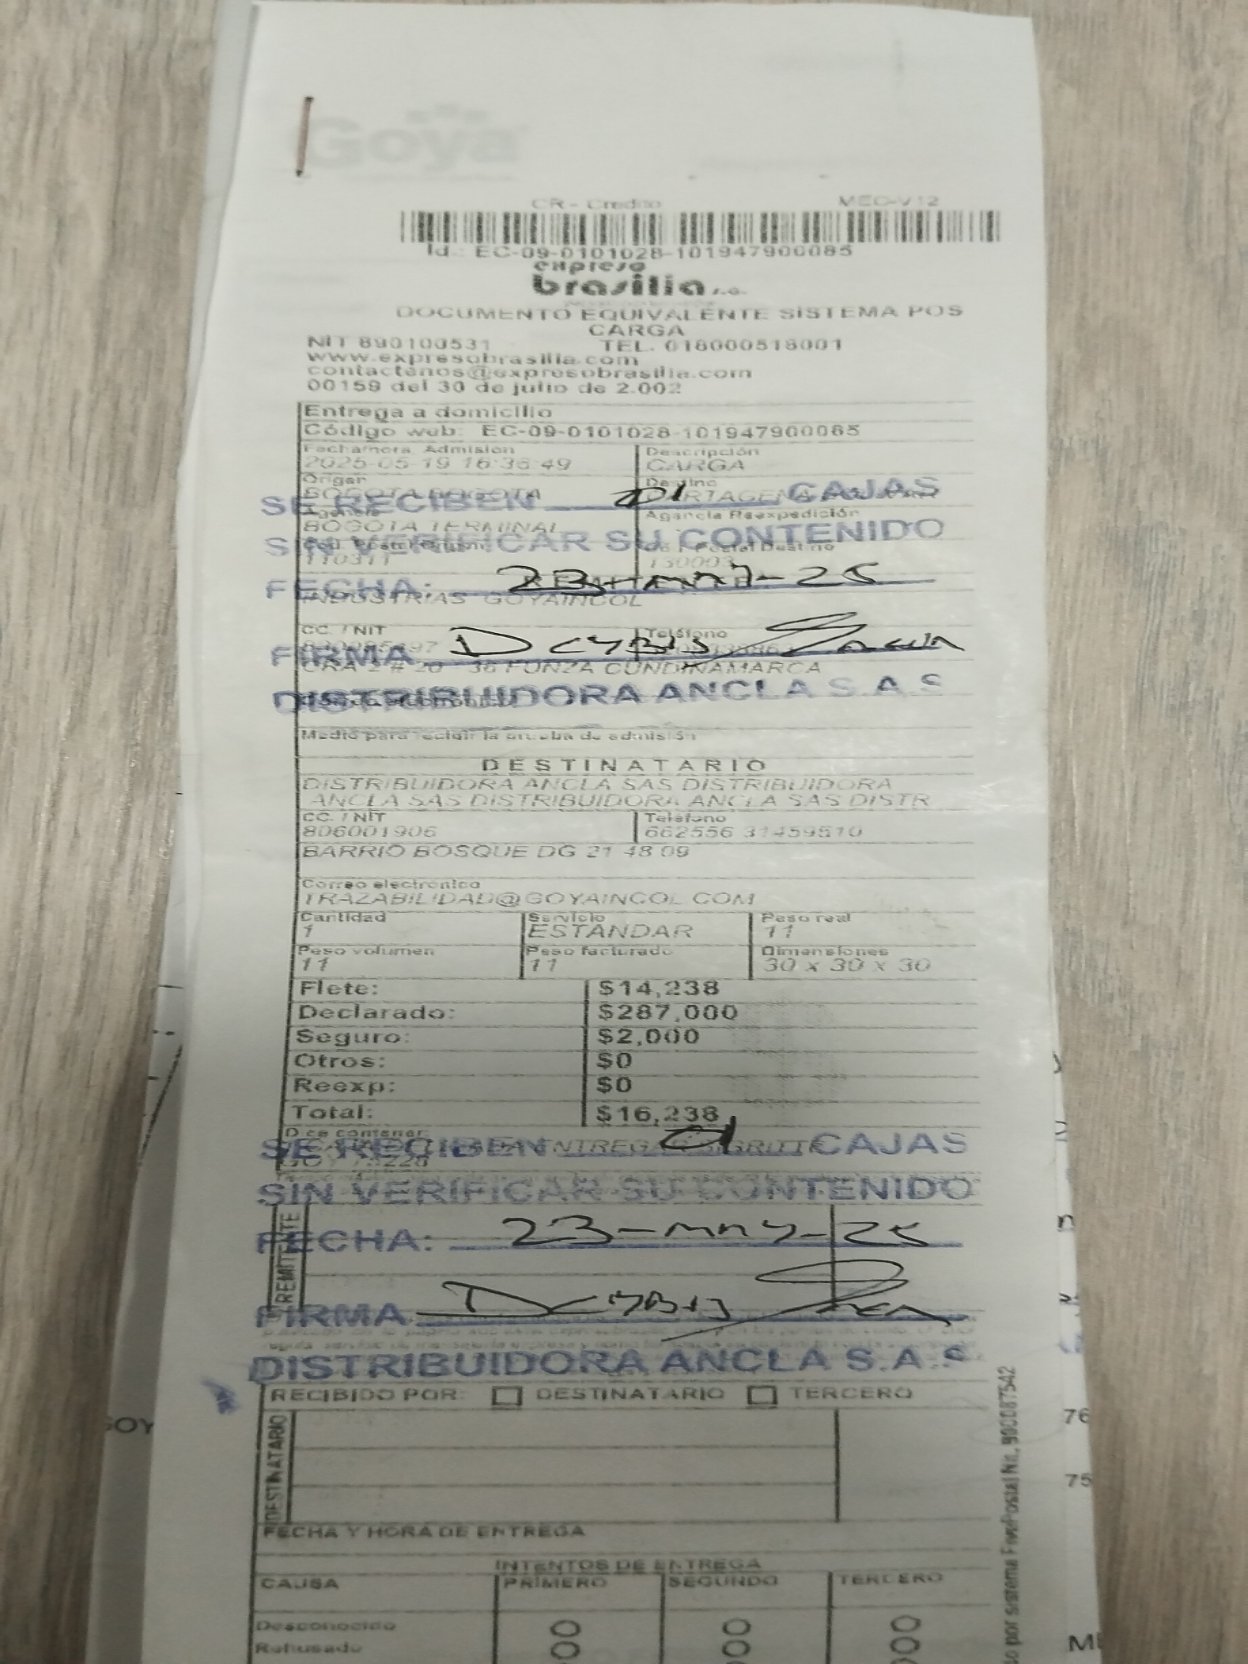 Goya
CR - Credito MEC-V12
Id.: EC-09-0101028-101947900085
expreso
brasilia s.a.
DOCUMENTO EQUIVALENTE SISTEMA POS
CARGA
NIT 890100531 TEL. 018000518001
www.expresobrasilia.com
contactenos@expresobrasilia.com
00159 del 30 de julio de 2.002
Entrega a domicilio
Código web: EC-09-0101028-101947900085
Fecha/hora Admision Descripción
2025-05-19 16:36:49 CARGA
Origen Destino
BOGOTA BOGOTA CARTAGENA
SE RECIBEN 01 CAJAS
Agencia Agencia Reexpedición
BOGOTA TERMINAL
SIN VERIFICAR SU CONTENIDO
110311 130003
FECHA: 23-may-25
INDUSTRIAS GOYAINCOL
CC. / NIT Teléfono
FIRMA
CRA 2 # 20 - 36 FUNZA CUNDINAMARCA
DISTRIBUIDORA ANCLA S.A.S
Medio para recibir la prueba de admisión
DESTINATARIO
DISTRIBUIDORA ANCLA SAS DISTRIBUIDORA
ANCLA SAS DISTRIBUIDORA ANCLA SAS DISTR
CC. / NIT Teléfono
806001906 662556 31459510
BARRIO BOSQUE DG 21 48 09
Correo electrónico
TRAZABILIDAD@GOYAINCOL.COM
Cantidad Servicio Peso real
1 ESTANDAR 11
Peso volumen Peso facturado Dimensiones
11 11 30 x 30 x 30
Flete: $14,238
Declarado: $287,000
Seguro: $2,000
Otros: $0
Reexp: $0
Total: $16,238
Dice contener:
SE RECIBEN 01 CAJAS
SIN VERIFICAR SU CONTENIDO
REMITENTE
FECHA: 23-may-25
FIRMA
DISTRIBUIDORA ANCLA S.A.S
RECIBIDO POR: DESTINATARIO TERCERO
DESTINATARIO
FECHA Y HORA DE ENTREGA
INTENTOS DE ENTREGA
CAUSA PRIMERO SEGUNDO TERCERO
Desconocido
Rehusado
por sistema FivePostal Nit. 900087542
76
75